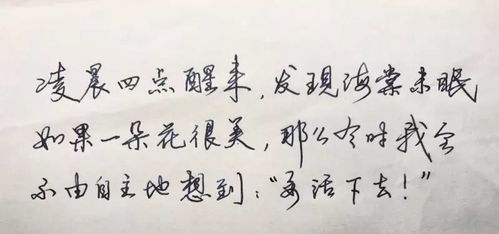 凌晨四点醒来，发现海棠未眠
如果一朵花很美，那么有时我会
不由自主地想到：“要活下去！”